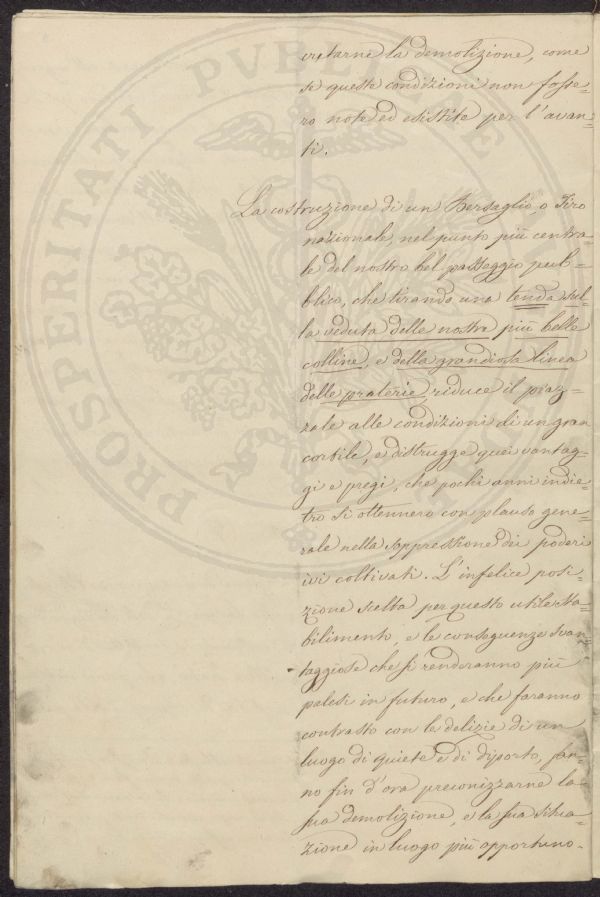 cretarne la demolizione, come
se queste condizioni non fosse=
ro note ed esistite per l'avan=
ti.
La costruzione di un Bersaglio, o Tiro
nazionale, nel punto più centra=
le del nostro bel passeggio pub=
blico, che tirando una tenda sul=
la veduta delle nostre più belle
colline, e della grandiosa linea
delle praterie, riduce il piaz=
zale alle condizioni di un gran
cortile, e distrugge quei vantag=
gi e pregi, che pochi anni indie=
tro si ottennero con plauso gene=
rale nella soppressione dei poderi
ivi coltivati. L'infelice posi=
zione scelta per questo utile Sta=
bilimento, e le conseguenze svan=
taggiose che si renderanno più
palesi in futuro, e che faranno
contrasto con le delizie di un
luogo di quiete e di diporto, fan=
no fin d'ora preconizzarne la
sua demolizione, e la sua situa=
zione in luogo più opportuno.
PROSPERITATI PVBLICAE